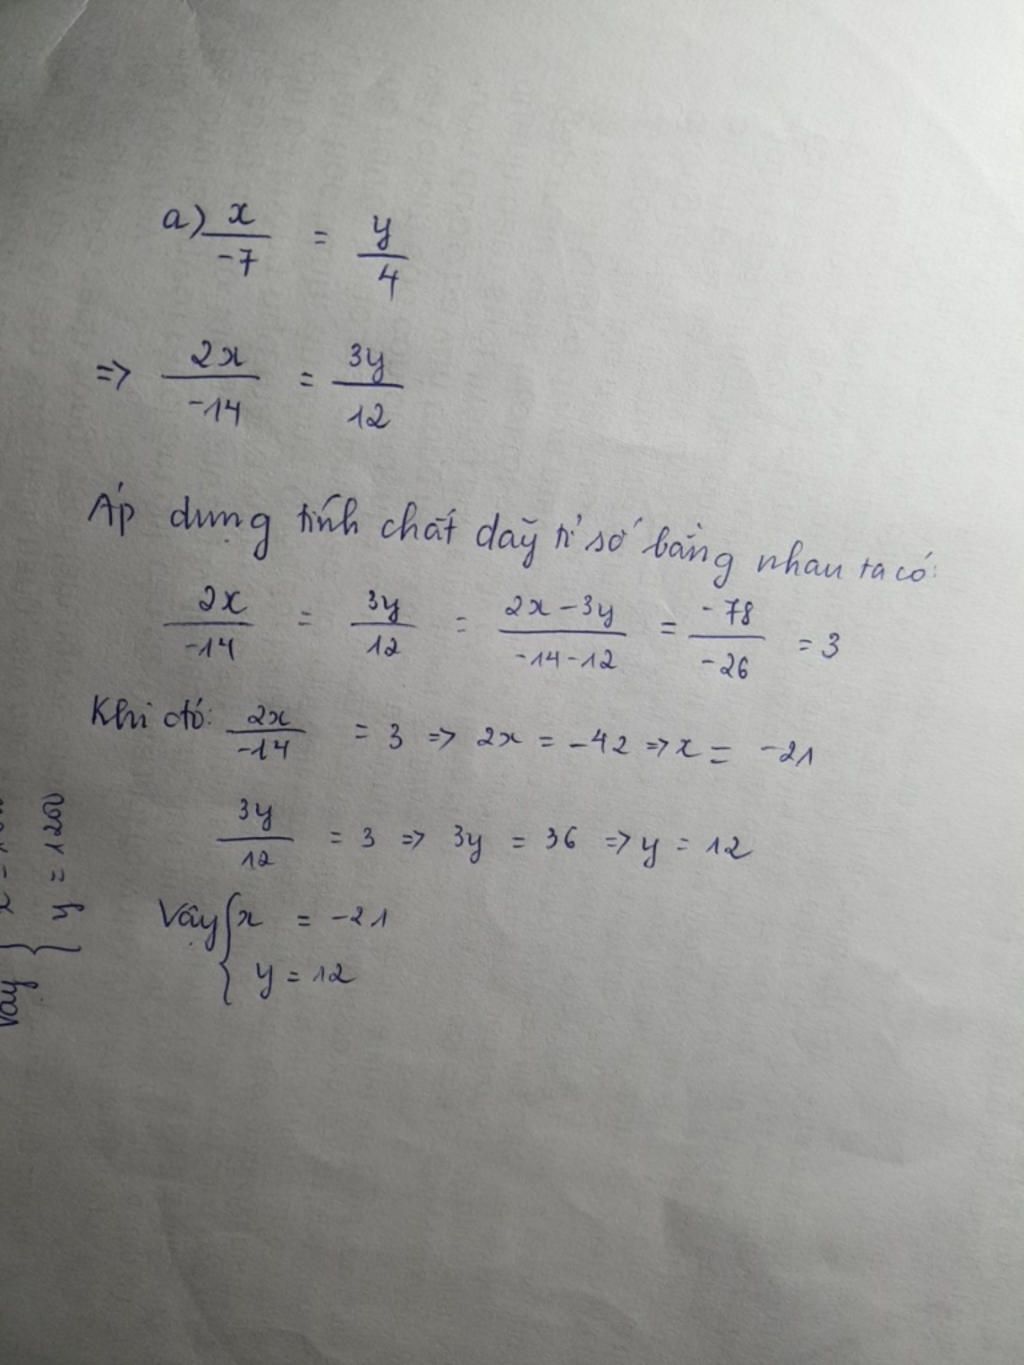 a) x/-7 = y/4
=> 2x/-14 = 3y/12
Áp dụng tính chất dãy tỉ số bằng nhau ta có:
2x/-14 = 3y/12 = 2x-3y/-14-12 = -78/-26 = 3
Khi đó: 2x/-14 = 3 => 2x = -42 => x = -21
3y/12 = 3 => 3y = 36 => y = 12
Vậy { x = -21
y = 12
Vậy {
y = 1200